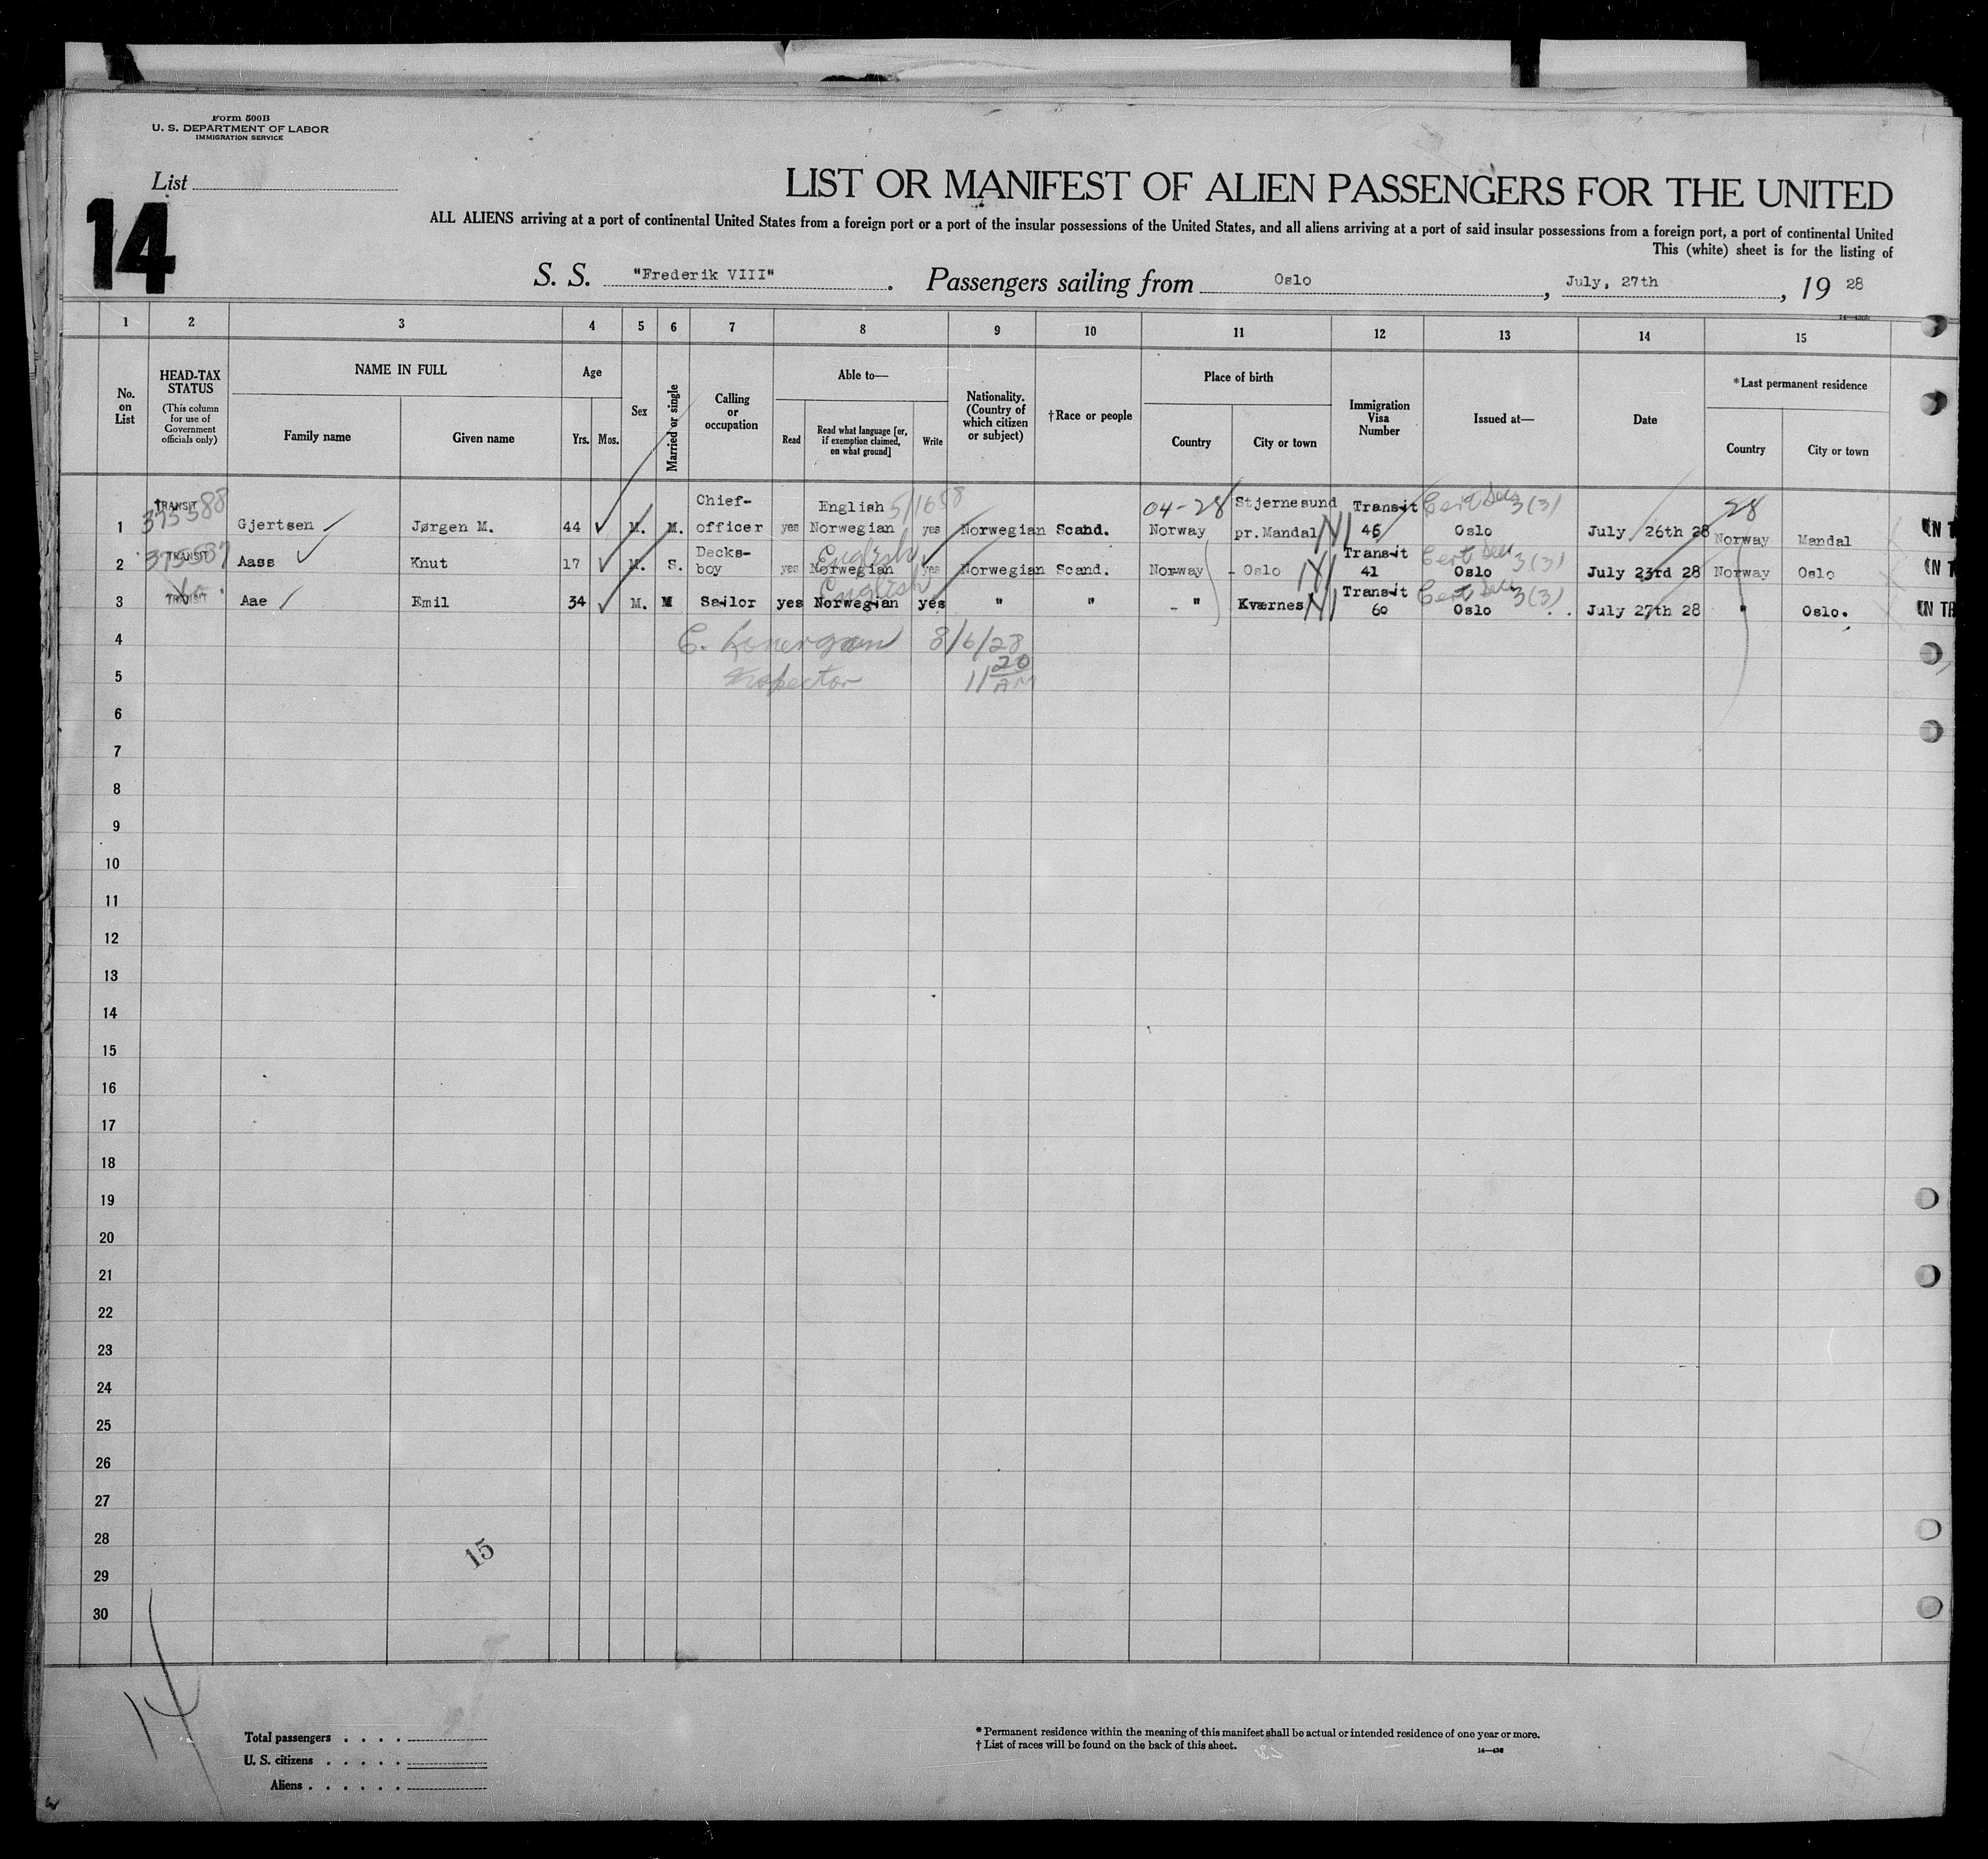 Form 500B
U. S. DEPARTMENT OF LABOR
IMMIGRATION SERVICE
List
14
LIST OR MANIFEST OF ALIEN PASSENGERS FOR THE UNITED
ALL ALIENS arriving at a port of continental United States from a foreign port or a port of the insular possessions of the United States, and all aliens arriving at a port of said insular possessions from a foreign port, a port of continental United
This (white) sheet is for the listing of
S. S. "Frederik VIII". Passengers sailing from Oslo, July, 27th, 19 28
1 2 3 4 5 6 7 8 9 10 11 12 13 14 15
No. on List
HEAD-TAX STATUS
(This column for use of Government officials only)
NAME IN FULL
Family name
Given name
Age
Yrs. Mos.
Sex
Married or single
Calling or occupation
Able to—
Read
Read what language [or, if exemption claimed, on what ground]
Write
Nationality. (Country of which citizen or subject)
†Race or people
Place of birth
Country
City or town
Immigration Visa Number
Issued at—
Date
*Last permanent residence
Country
City or town
TRANSIT 375588 Chief- English 5/1658 04-28 Stjernesund Transit 3(3) 28
1 Gjertsen Jørgen M. 44 M. M. officer yes Norwegian yes Norwegian Scand. Norway pr. Mandal 45 Oslo July 26th 28 Norway Mandal IN T
TRANSIT 375587 Decks- English Transit 3(3)
2 Aass Knut 17 M. S. boy yes Norwegian yes Norwegian Scand. Norway - Oslo 41 Oslo July 23rd 28 Norway Oslo IN T
TRANSIT English Transit 3(3)
3 Aae Emil 34 M. M Sailor yes Norwegian yes " " - " Kværnes 60 Oslo July 27th 28 " Oslo. IN TR
4 8/6/28
5 Inspector 11 20 AM
6
7
8
9
10
11
12
13
14
15
16
17
18
19
20
21
22
23
24
25
26
27
28
15
29
30
14
Total passengers . . . .
U. S. citizens . . . . .
Aliens . . . . . .
* Permanent residence within the meaning of this manifest shall be actual or intended residence of one year or more.
† List of races will be found on the back of this sheet.